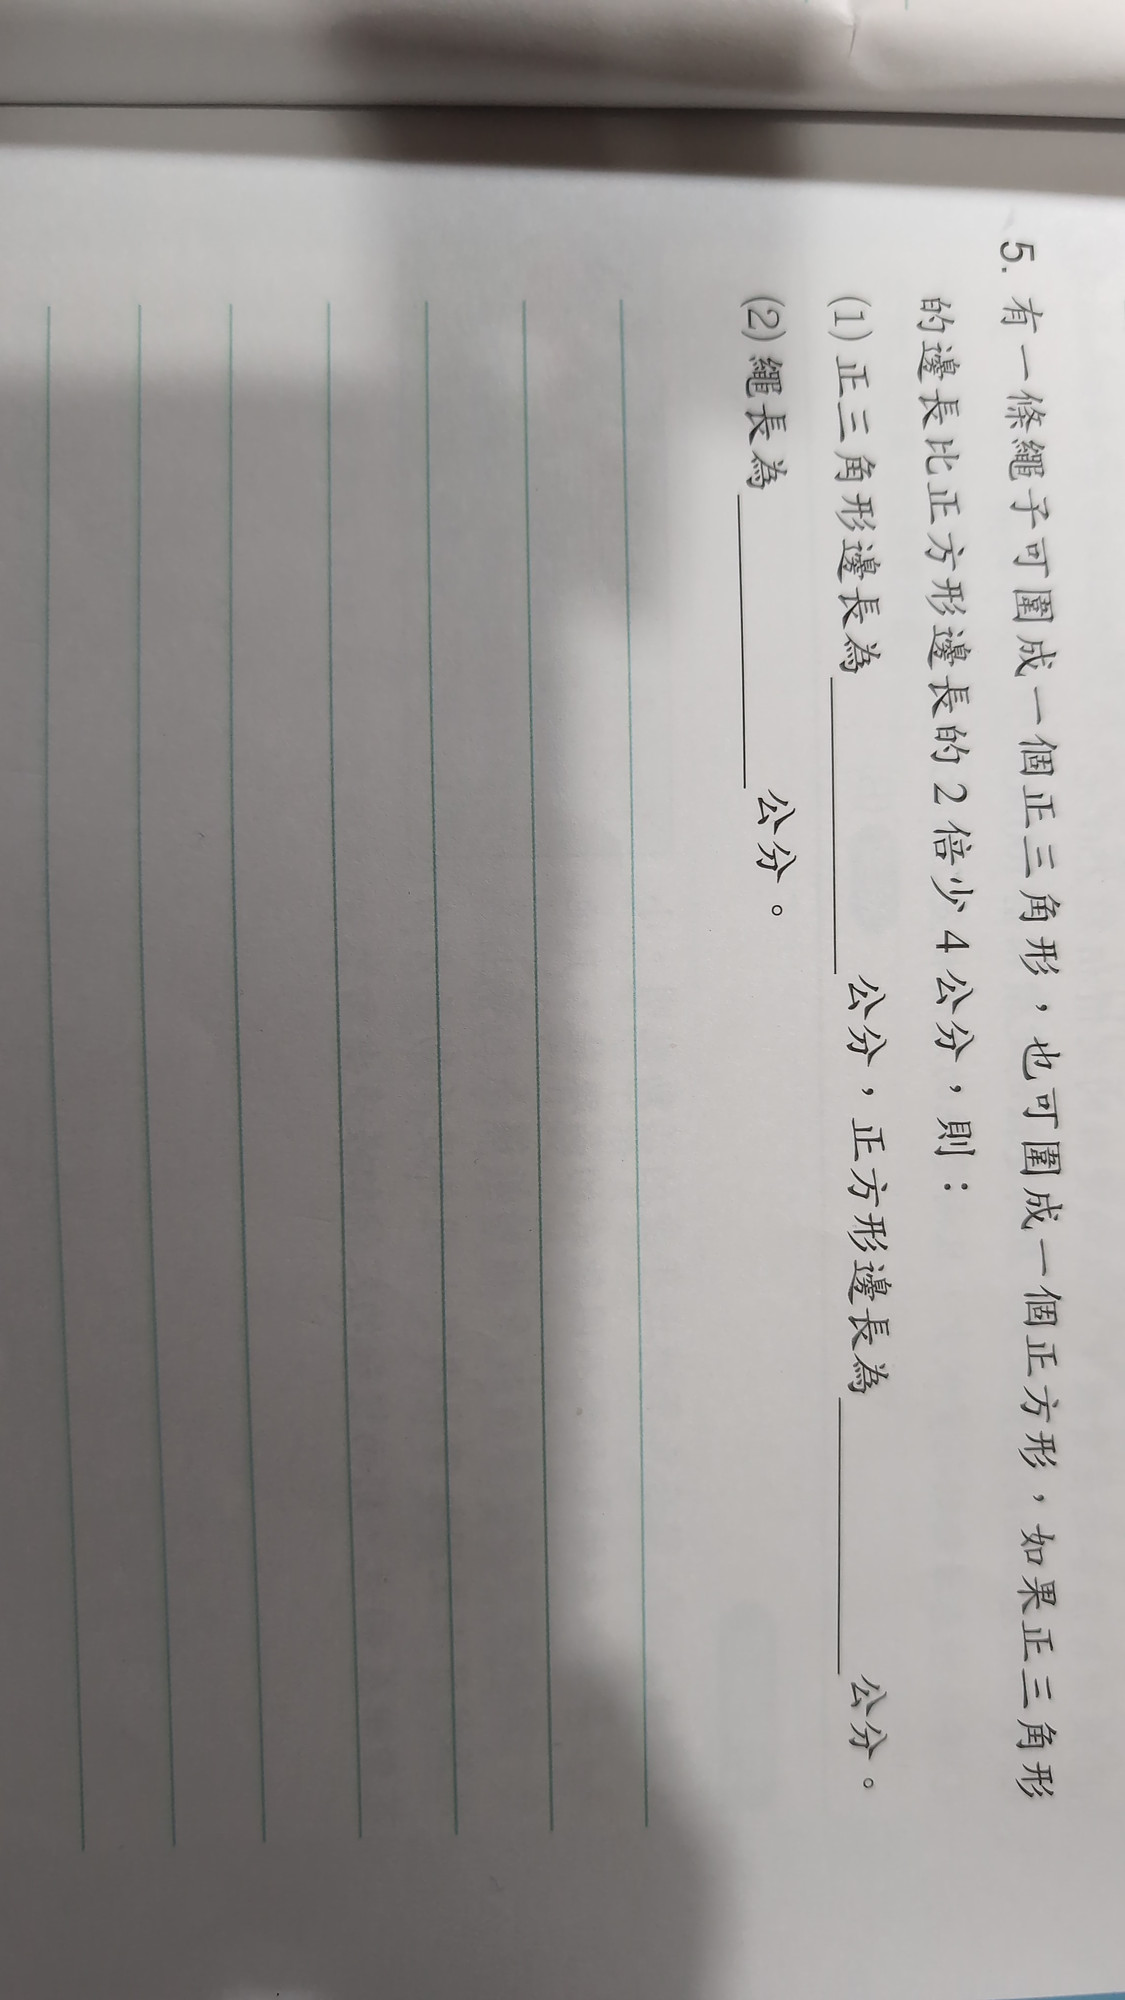 5. 有一條繩子可圍成一個正三角形，也可圍成一個正方形，如果正三角形
的邊長比正方形邊長的2倍少4公分，則：
(1) 正三角形邊長為＿＿＿＿公分，正方形邊長為＿＿＿＿公分。
(2) 繩長為＿＿＿＿公分。